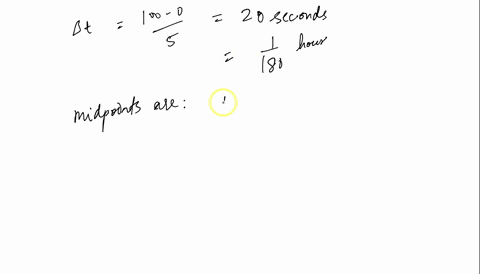 Δt = 100-0 / 5 = 20 seconds
= 1/180 hour
midpoints are: